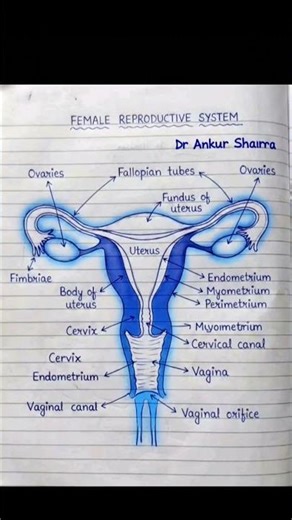 FEMALE REPRODUCTIVE SYSTEM
Dr Ankur Shairra
Ovaries
Fallopian tubes
Ovaries
Fundus of
uterus
Uterus
Fimbriae
Body of
uterus
Endometrium
Myometrium
Perimetrium
Cervix
Myometrium
Cervical canal
Cervix
Endometrium
Vagina
Vaginal canal
Vaginal orifice